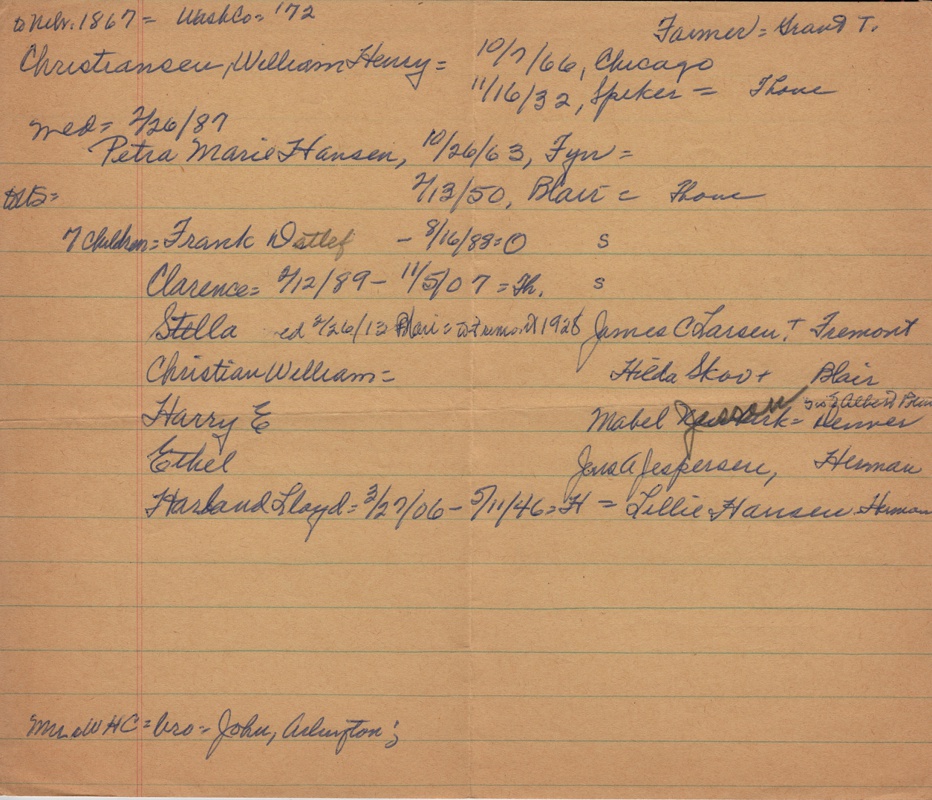 to Nebr. 1867 = WashCo = '72
Farmer = Grant T.
Christiansen, William Henry = 10/7/66, Chicago
11/16/32, Spiker = Thone
Med = 2/26/87
Petra Marie Hansen, 10/26/63, Fyn =
2/13/50, Blair = Thone
7 Children = Frank Detlef - 8/16/88 = O s
Clarence = 2/12/89 - 11/5/07 = Th. s
Stella ed 2/26/13 Blair = to Fremont 1926 James C Larsen, + Fremont
Christian William = Hilda Skov + Blair
Harry E Mabel = Denver
Ethel Jens A Jespersen, Herman
Harland Lloyd = 3/27/06 - 5/11/46 = H = Lillie Hansen Herman
Mrs WHC = bro = John, Arlington;